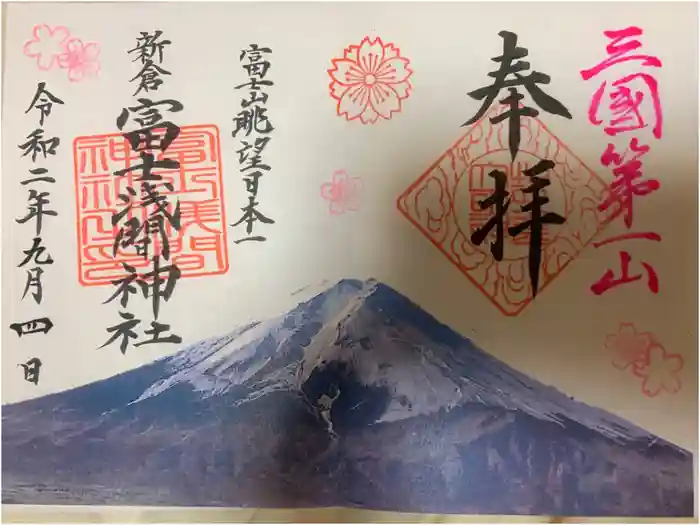 三國第一山
奉拝
富士山眺望日本一
新倉
富士浅間神社
令和二年九月四日